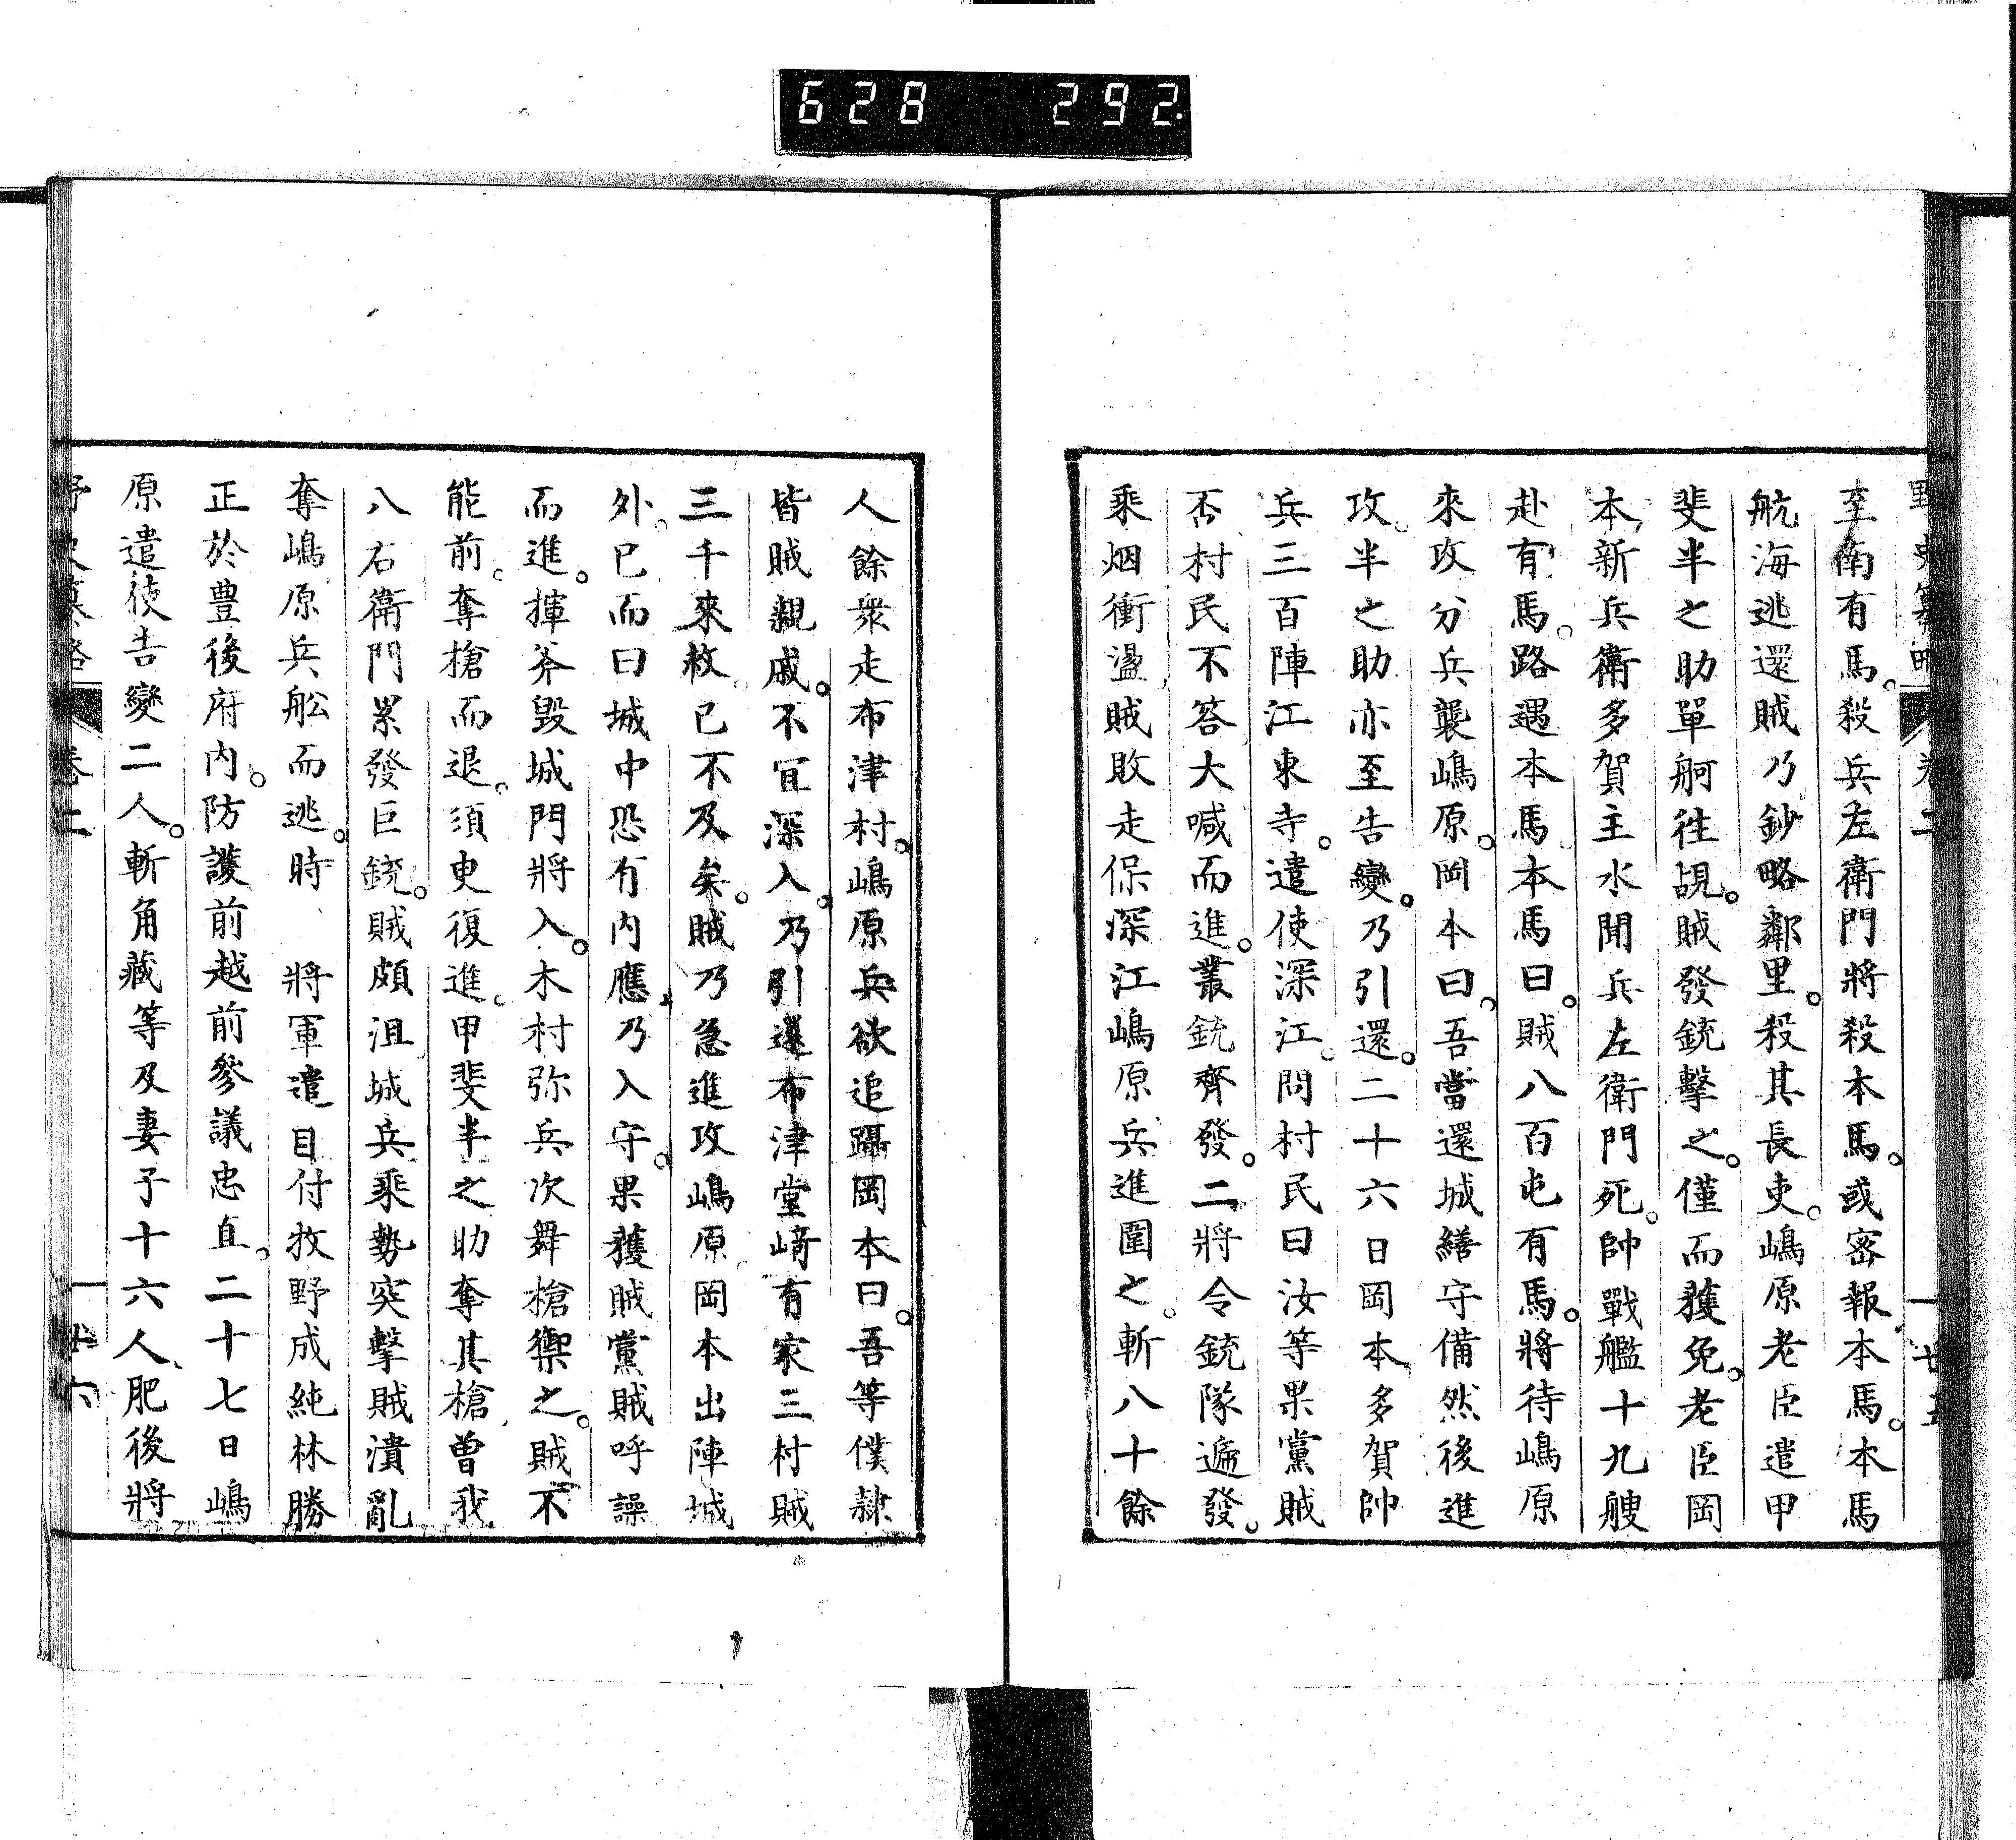 628 292.
野史纂略 卷二 廿五
至南有馬。殺兵左衛門將殺本馬。或密報本馬。本馬
航海逃還賊乃鈔略鄰里。殺其長吏。嶋原老臣遣甲
斐半之助單舸徃覘。賊發銃擊之。僅而獲免。老臣岡
本新兵衛多賀主水聞兵左衛門死。帥戰艦十九艘
赴有馬。路遇本馬本馬曰。賊八百屯有馬。將待嶋原
來攻分兵襲嶋原。岡本曰。吾當還城繕守備然後進
攻。半之助亦至告變。乃引還。二十六日岡本多賀帥
兵三百陣江東寺。遣使深江。問村民曰汝等果黨賊
否村民不答大喊而進。叢銃齊發。二將令銃隊遍發。
乘烟衝盪賊敗走保深江嶋原兵進圍之。斬八十餘
人餘衆走布津村。嶋原兵欲追躡岡本曰。吾等僕隷
皆賊親戚。不宜深入。乃引還布津堂﨑有家三村賊
三千來救。已不及矣。賊乃急進攻嶋原岡本出陣城
外。已而曰城中恐有内應。乃入守。果獲賊黨賊呼譟
而進。揮斧毀城門將入。木村弥兵次舞槍禦之。賊不
能前。奪槍而退。須臾復進。甲斐半之助奪其槍曽我
八右衛門累發巨銃。賊頗沮城兵乘勢突擊賊潰亂
奪嶋原兵舩而逃。時 將軍遣目付牧野成純林勝
正於豊後府内。防護前越前參議忠直。二十七日嶋
原遣使告變二人。斬角藏等及妻子十六人。肥後將
野史纂略 卷二 廿六